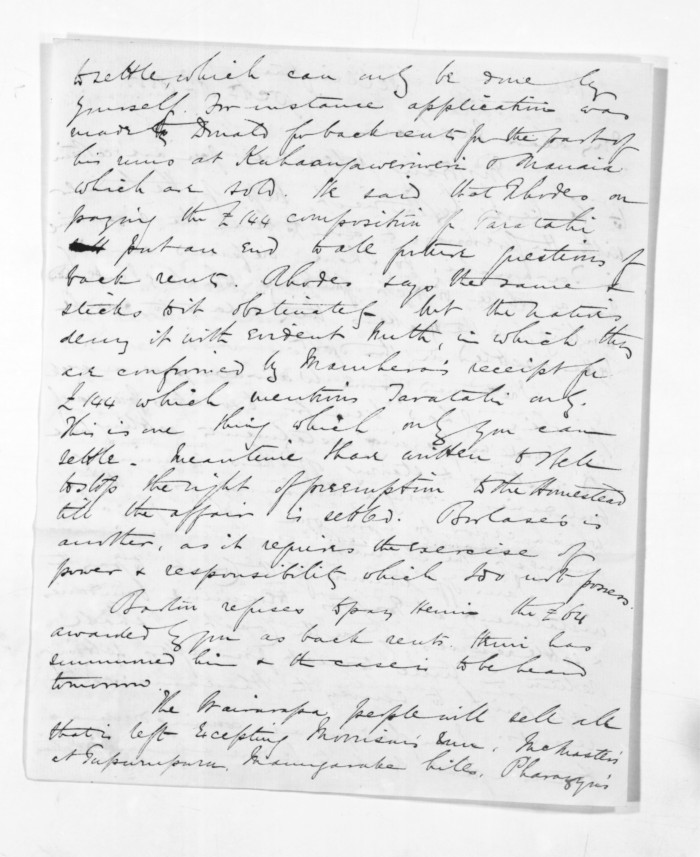 to settle, which can only be done by
yourself. For instance application was
made to Donald for back rents for the part of
his runs at Kuhaangawariwari & Manaia
which are sold. He said that Rhodes on
paying the £144 composition for Taratahi
put an end to all future questions of
back rents. Rhodes says the same &
sticks to it obstinately but the natives
deny it with evident truth, in which they
are confirmed by receipt for
£144 which mentions Taratahi only.
This is one thing which only you can
settle. Meantime I have written to
to stop the right of preemption to the Homestead
till the affair is settled. Borlase's is
another, as it requires the exercise of
power & responsibility which I do not possess.
refuses to pay Hemi the £64
awarded by you as back rents. Hemi has
summoned him & the case is to be heard
tomorrow.
The Wairarapa people will sell all
that is left excepting Morrison's run, McMaster's
at Tupurupuru, hills, Pharazyn's